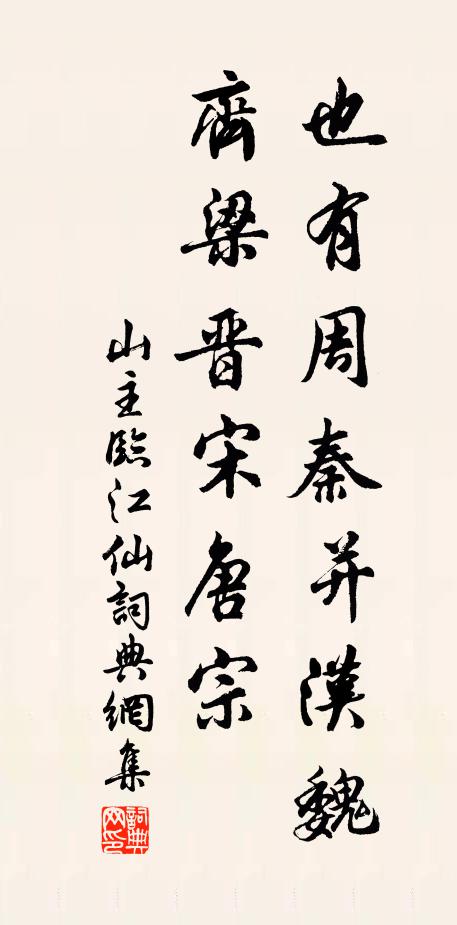 也有周秦并漢魏
齊梁晋宋唐宗
山主臨江仙詞典網集
詞典网印